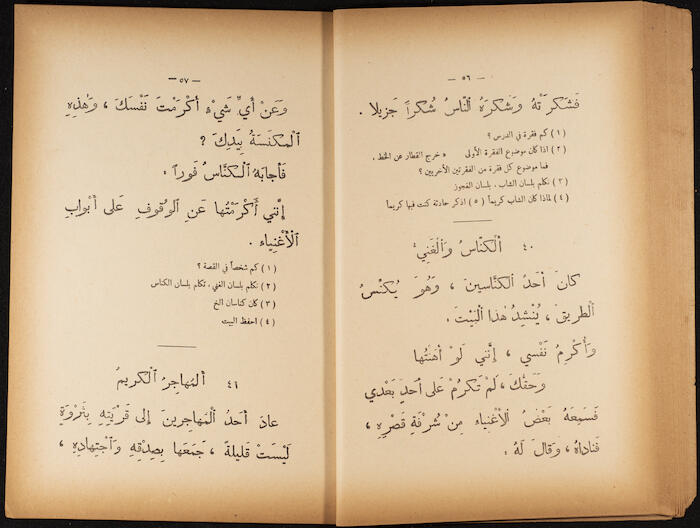 — ٥٦ —
فَشَكَرَتْهُ وَشَكَرَهُ ٱلنَّاسُ شُكْراً جَزِيلاً .
(١) كم فقرة في الدرس ؟
(٢) اذا كان موضوع الفقرة الأولى « خرج القطار عن الخط .
فما موضوع كل فقرة من الفقرتين الأخريين ؟
(٣) تكلم بلسان الشاب . بلسان العجوز
(٤) لماذا كان الشاب كريماً (٥) اذكر حادثة كنت فيها كريماً
٤٠ أَلْكَنَّاسُ وَٱلْغَنِيُّ
كَانَ أَحَدُ ٱلْكَنَّاسِينَ ، وَهُوَ يُكَنِّسُ
ٱلطَّرِيقَ ، يُنْشِدُ هٰذَا ٱلْبَيْتَ .
وَأُكْرِمُ نَفْسِي ، إِنَّنِي لَوْ أَهَنْتُهَا
وَحَقِّكَ ، لَمْ تَكْرُمْ عَلَى أَحَدٍ بَعْدِي
فَسَمِعَهُ بَعْضُ ٱلْأَغْنِيَاءِ مِنْ شُرْفَةِ قَصْرِهِ ،
فَنَادَاهُ ، وَقَالَ لَهُ :
— ٥٧ —
وَعَنْ أَيِّ شَيْءٍ أَكْرَمْتَ نَفْسَكَ ، وَهٰذِهِ
ٱلْمِكْنَسَةُ بِيَدِكَ ؟
فَأَجَابَهُ ٱلْكَنَّاسُ فَوْراً .
إِنَّنِي أَكْرَمْتُهَا عَنِ ٱلْوُقُوفِ عَلَى أَبْوَابِ
ٱلْأَغْنِيَاءِ .
(١) كم شخصاً في القصة ؟
(٢) تكلم بلسان الغني . تكلم بلسان الكناس
(٣) كان كناسان الخ
(٤) احفظ البيت
٤١ أَلْمُهَاجِرُ ٱلْكَرِيمُ
عَادَ أَحَدُ ٱلْمُهَاجِرِينَ إِلَى قَرْيَتِهِ بِثَرْوَةٍ
لَيْسَتْ قَلِيلَةً ، جَمَعَهَا بِصِدْقِهِ وَٱجْتِهَادِهِ ،